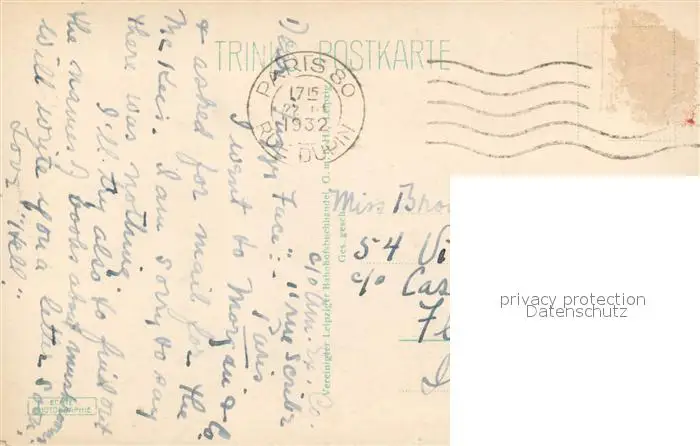 TRINKS POSTKARTE
PARIS 80
1715
1932
RUE DUPIN
c/o Am. Ex. Co.
11 rue Scribe
Paris
Face:-
I went to Morgan & Co
& asked for mail for the
McKees. I am sorry to say
there was nothing.
I'll try also to find out
the names of books about
will write you a letter soon.
Love
Miss
54 Vi
c/o Cas
Fl
Vereinigter Leipziger Bahnhofsbuchhandel, G.m.b.H., Leipzig
Ges. gesch.
ECHTE
PHOTOGRAPHIE
privacy protection
Datenschutz